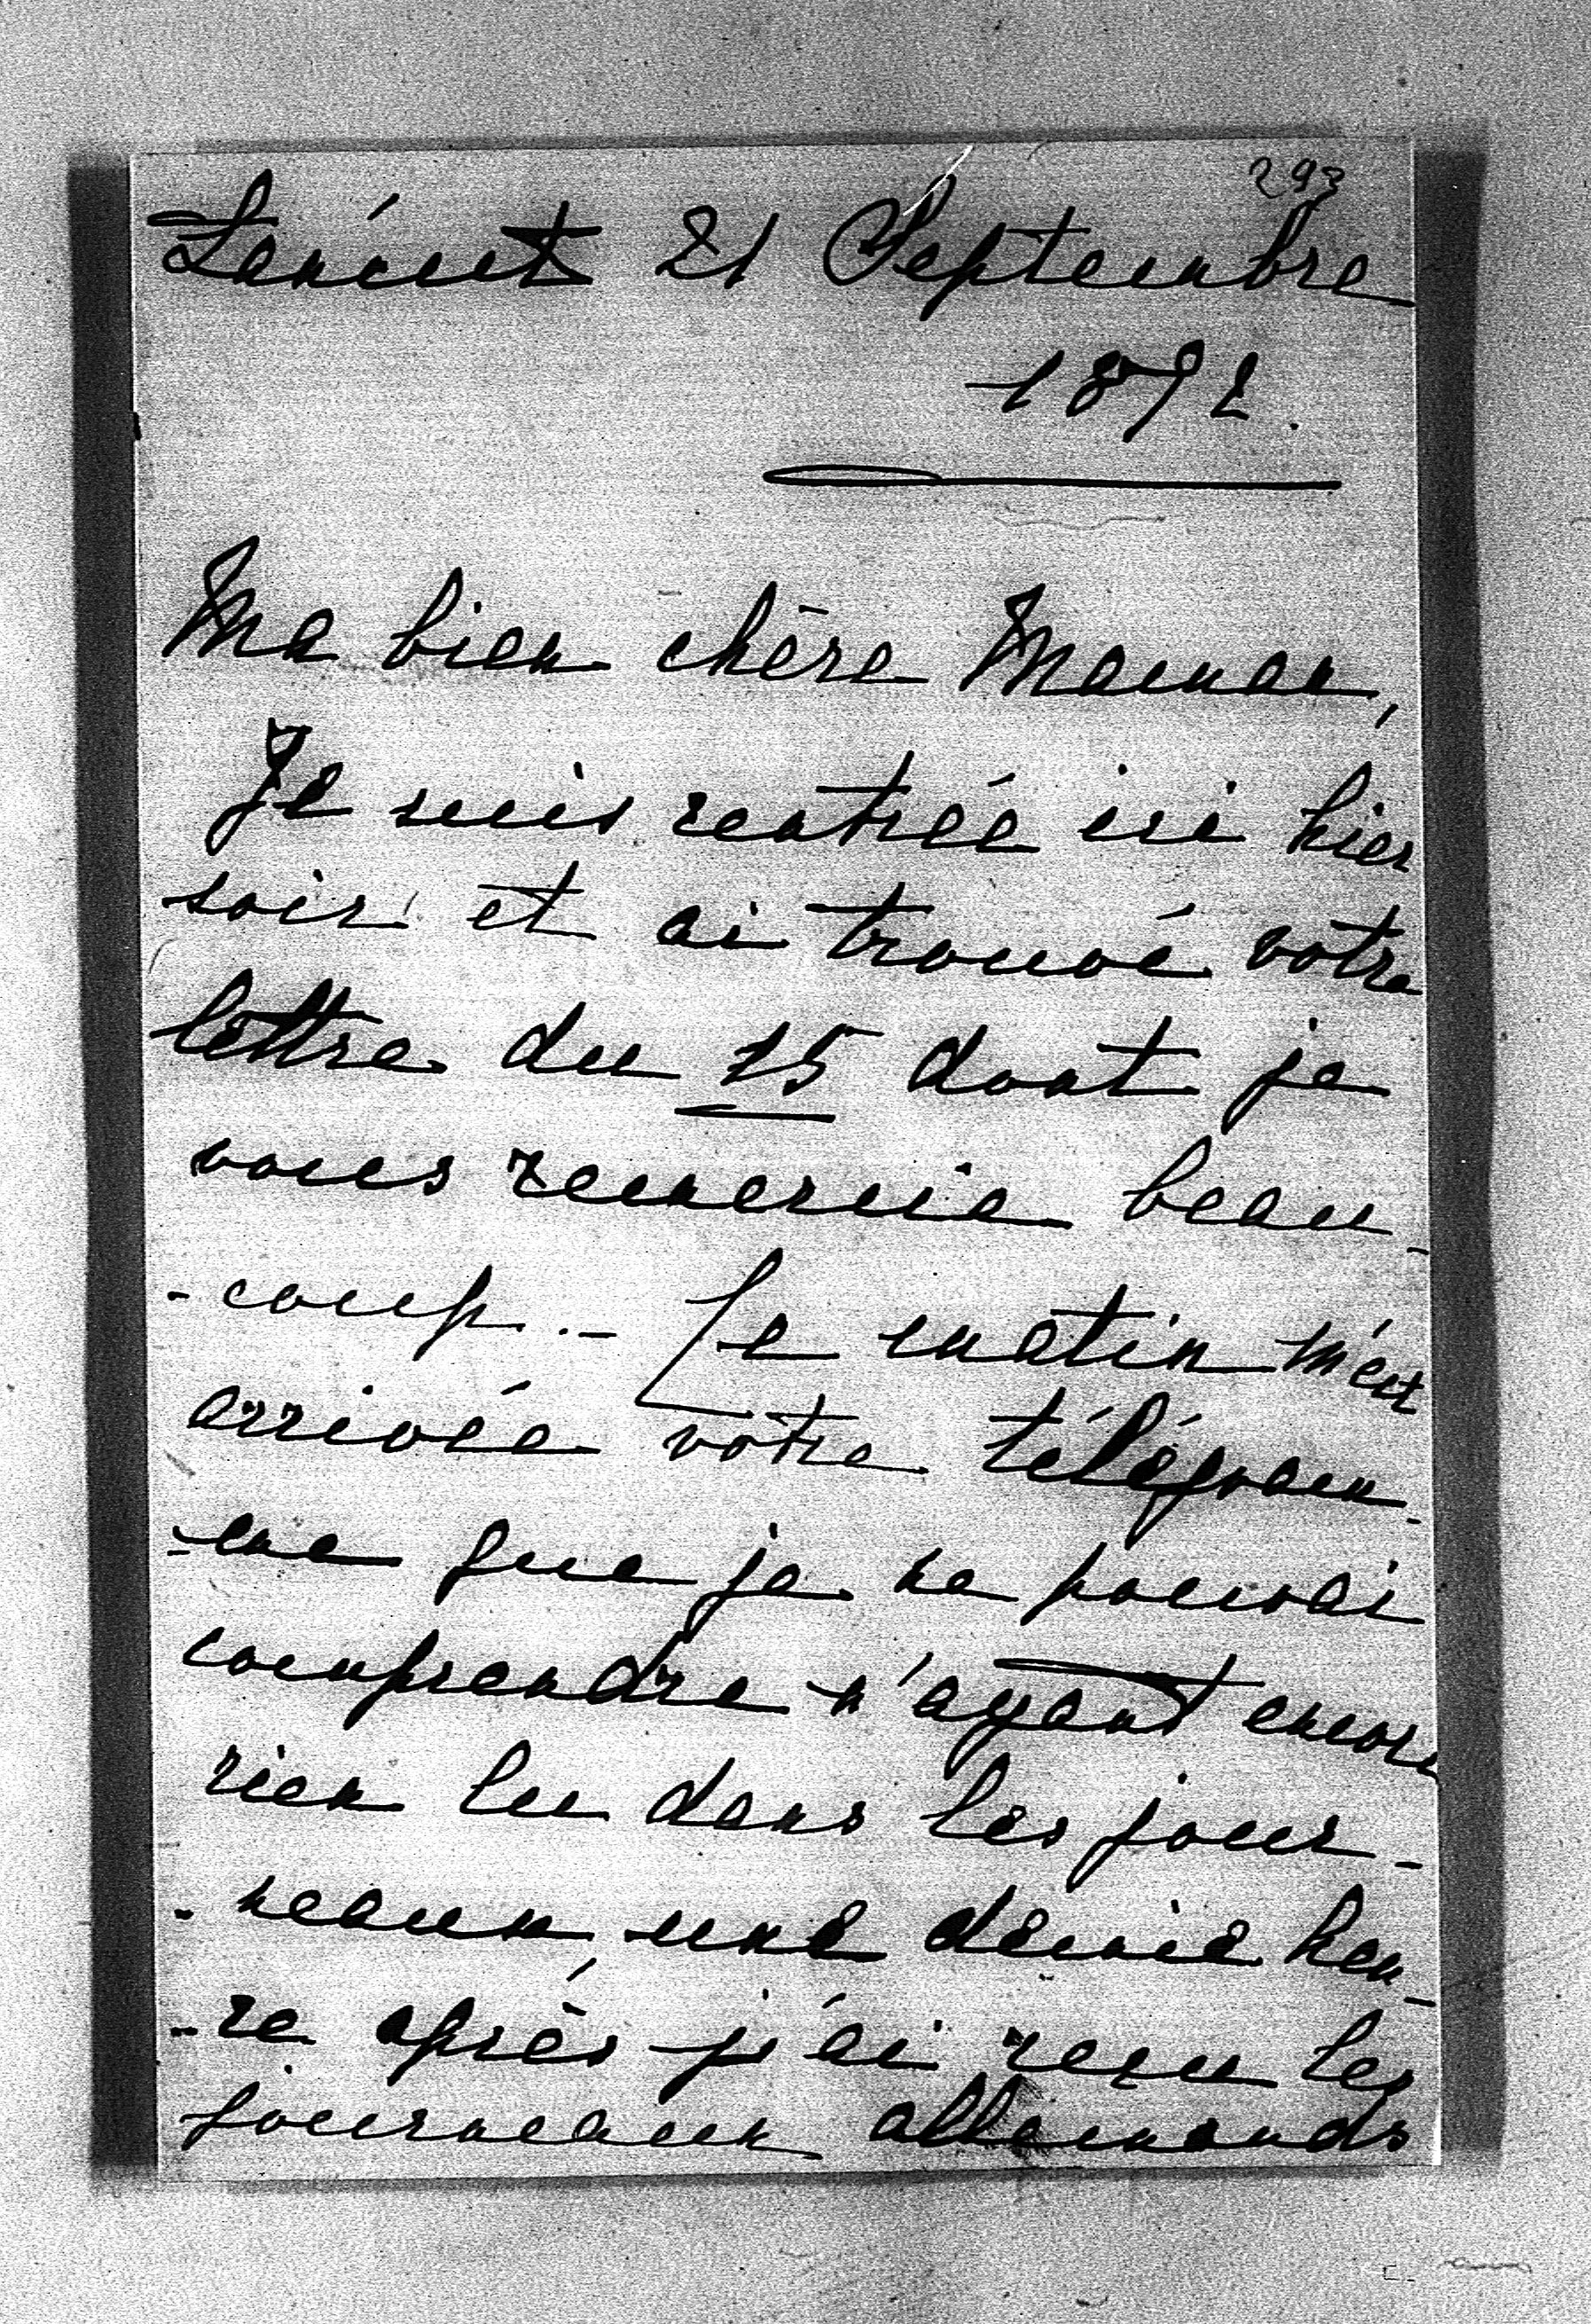 293
Lancut 21 Septembre
1892.
Ma bien chère Maman,
Je suis rentrée ici hier
soir et ai trouvé votre
lettre du 15 dont je
vous remercie beau-
-coup. - Le matin m'est
arrivée votre télégram-
-me que je ne pouvai
comprendre n'ayant encore
rien lu dans les jour-
-neaux, une demie heu-
-re après j'ai reçu les
journeaux allemands